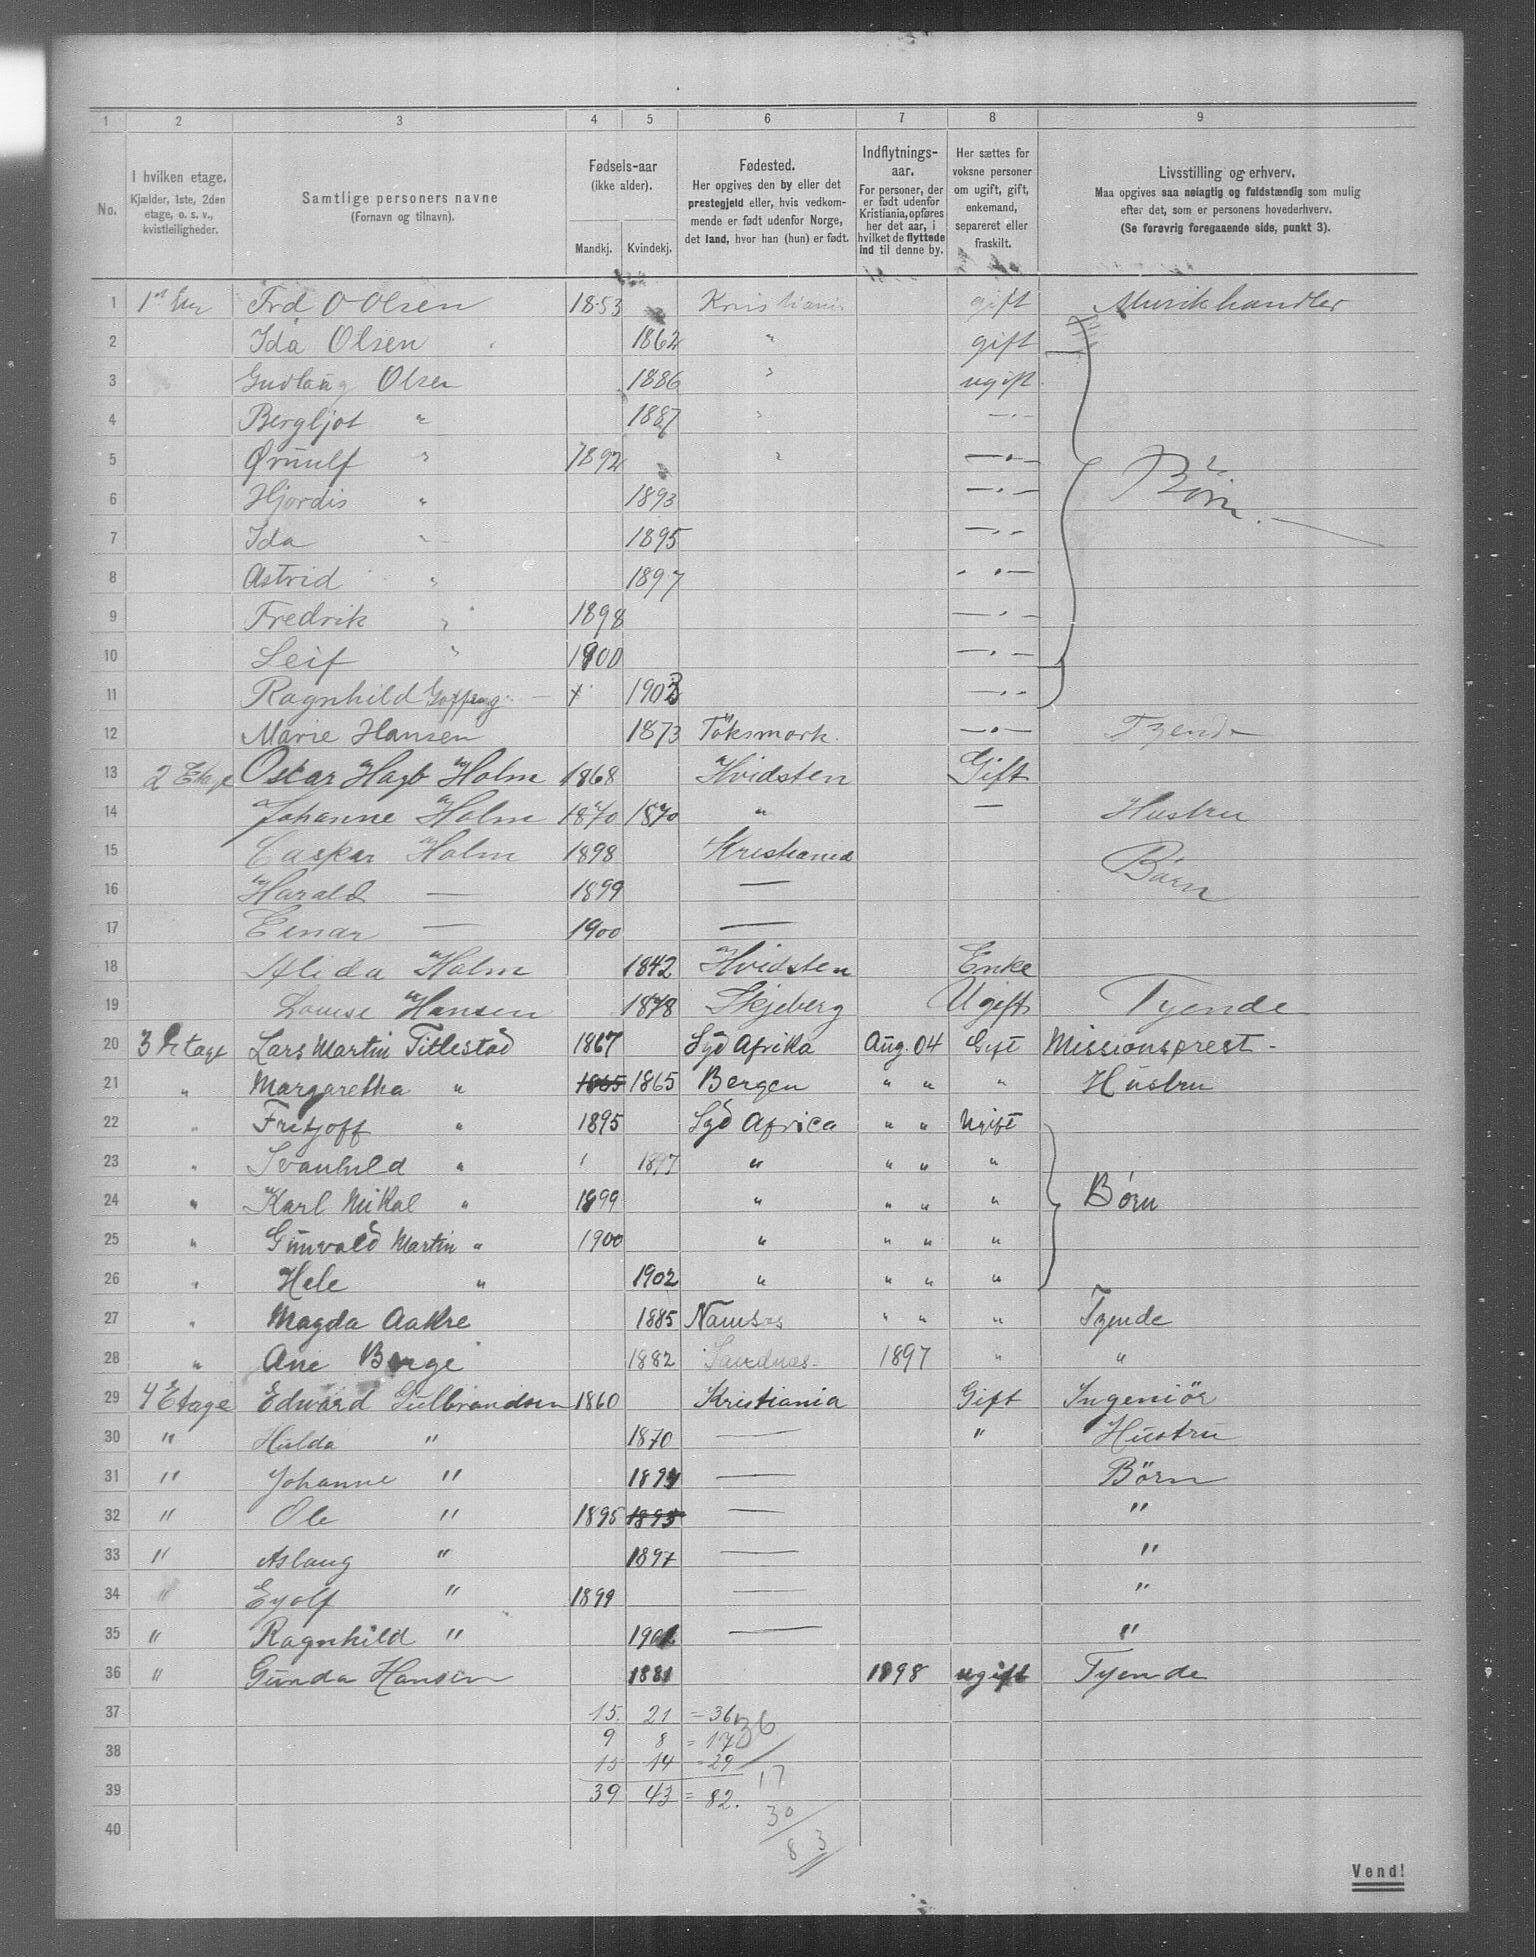 1 2 3 4 5 6 7 8 9
No.
I hvilken etage.
Kjælder, 1ste, 2den
etage, o. s. v.,
kvistleiligheder.
Samtlige personers navne
(Fornavn og tilnavn).
Fødsels-aar
(ikke alder).
Mandkj. Kvindekj.
Fødested.
Her opgives den by eller det
prestegjeld eller, hvis vedkom-
mende er født udenfor Norge,
det land, hvor han (hun) er født.
Indflytnings-
aar.
For personer, der
er født udenfor
Kristiania, opføres
her det aar, i
hvilket de flyttede
ind til denne by.
Her sættes for
voksne personer
om ugift, gift,
enkemand,
separeret eller
fraskilt.
Livsstilling og erhverv.
Maa opgives saa nøiagtig og fuldstændig som mulig
efter det, som er personens hovederhverv.
(Se forøvrig foregaaende side, punkt 3).
1 Frd O Olsen 1853 Kristiania gift Musikhandler
2 Ida Olsen 1862 " gift
3 Gudlaug Olsen 1886 " ugift
4 Bergljot " 1887 " —"—
5 Ørnulf " 1892 " —"—
6 Hjordis " 1893 —"— Børn.
7 Ida " 1895 —"—
8 Astrid " 1897 —"—
9 Fredrik " 1898 —"—
10 Leif " 1900 —"—
11 Ragnhild — 1903 —"—
12 Marie Hansen 1873 —"— Tyende
13 2 Etage Oscar Hagb Holm 1868 Hvidsten Gift
14 Johanne Holm 1870 1870 " — Hustru
15 Caspar Holm 1898 Kristiania Børn
16 Harald — 1899 —
17 Einar — 1900 —
18 Alida Holm 1842 Hvidsten Enke
19 Louise Hansen 1878 Skjeberg Ugift Tyende
20 3 Etage Lars Martin Titlestad 1867 Syd Afrika Aug. 04 Gift Missionsprest -
21 " Margaretha " 1865 1865 Bergen " " " Hustru
22 " Fritjoff " 1895 Syd Africa " " Ugift
23 " Svanhild " 1897 " " " "
24 " Karl Mikal " 1899 " " " " Børn
25 " Gunvald Martin " 1900 " " " "
26 " Hele " 1902 " " " "
27 " Magda Aakre 1885 Namsos " " " Tyende
28 " Ane Berge 1882 Sandnas 1897 " "
29 4 Etage Edward Gulbrandsen 1860 Kristiania Gift Ingeniör
30 " Hulda " 1870 — " Hustru
31 " Johanne " — Börn
32 " Ole " 1895 1895 — "
33 " Aslaug " 1897 — "
34 " Eyolf " 1899 — "
35 " Ragnhild " — "
36 " Gunda Hansen 1881 1898 ugift Tyende
37 15. 21 = 36 36
38 9 8 = 17
15 14 = 29
39 39 43 = 82. 17
40 30
83
Vend!